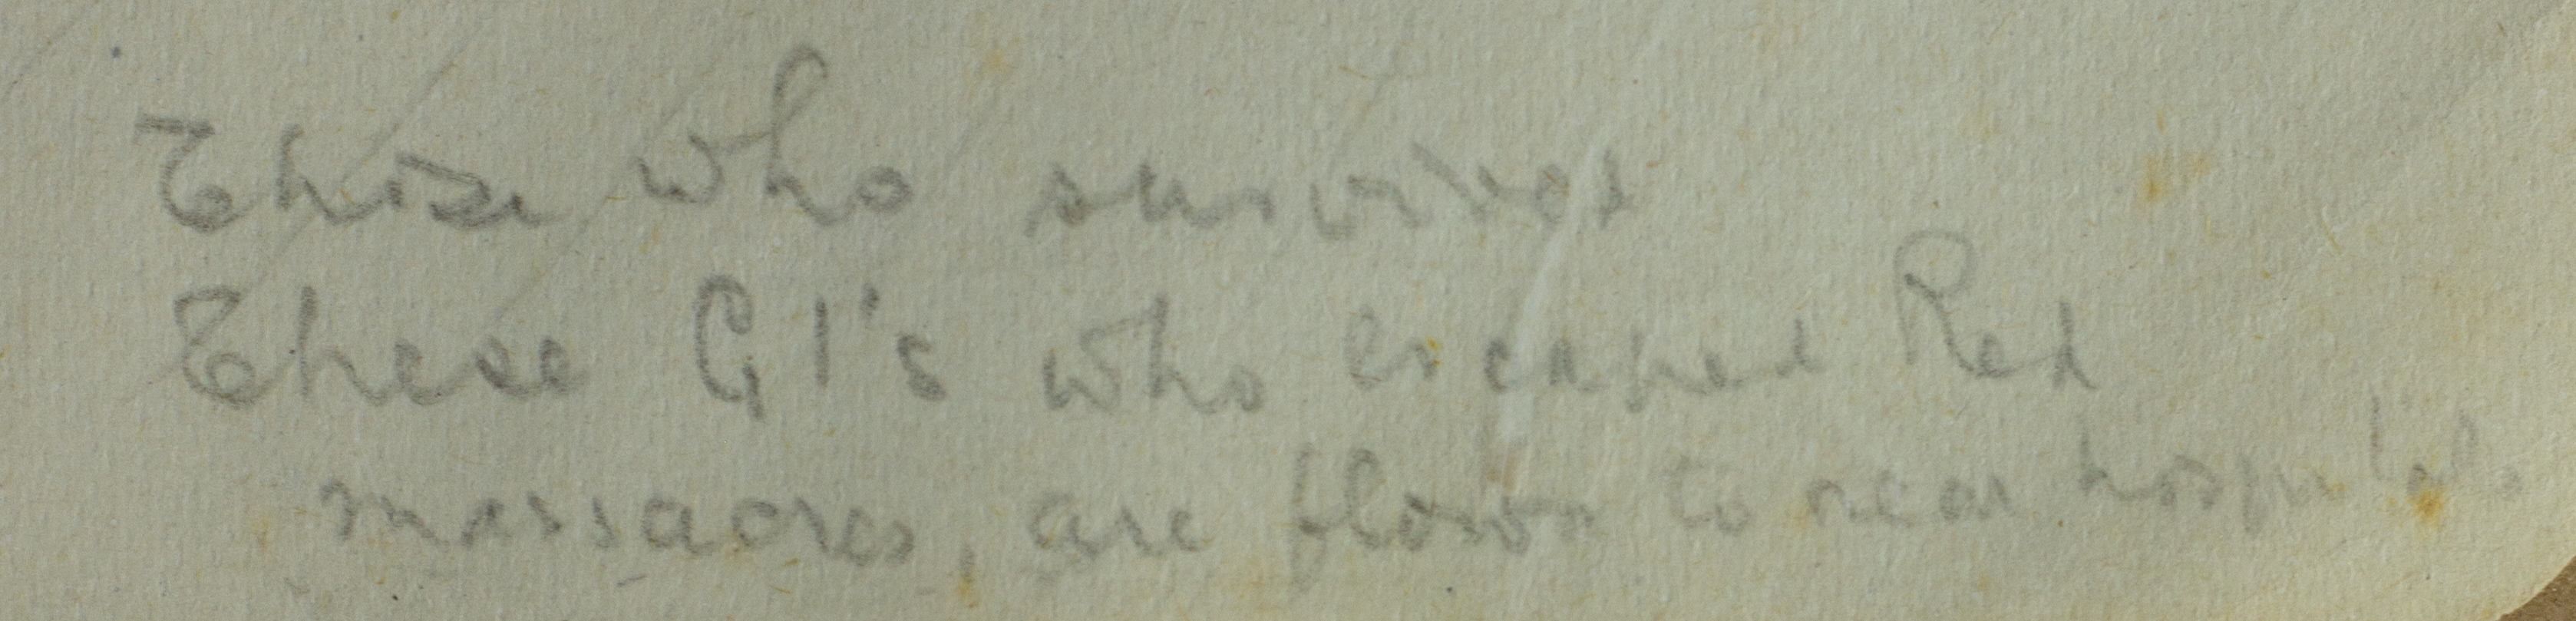 Those who survived
These G I's who escaped Red
massacres, are flown to near hospital.